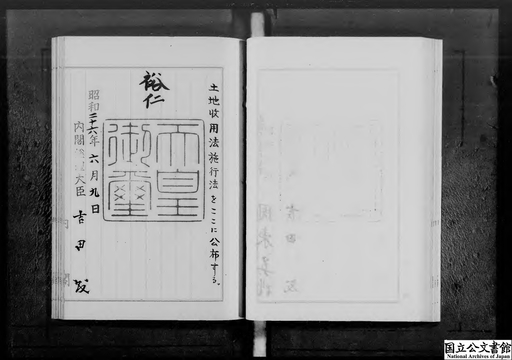 土地收用法施行法をここに公布する。
裕仁
天皇
御璽
昭和二十六年六月九日
内閣総理大臣 吉田茂
国立公文書館
National Archives of Japan